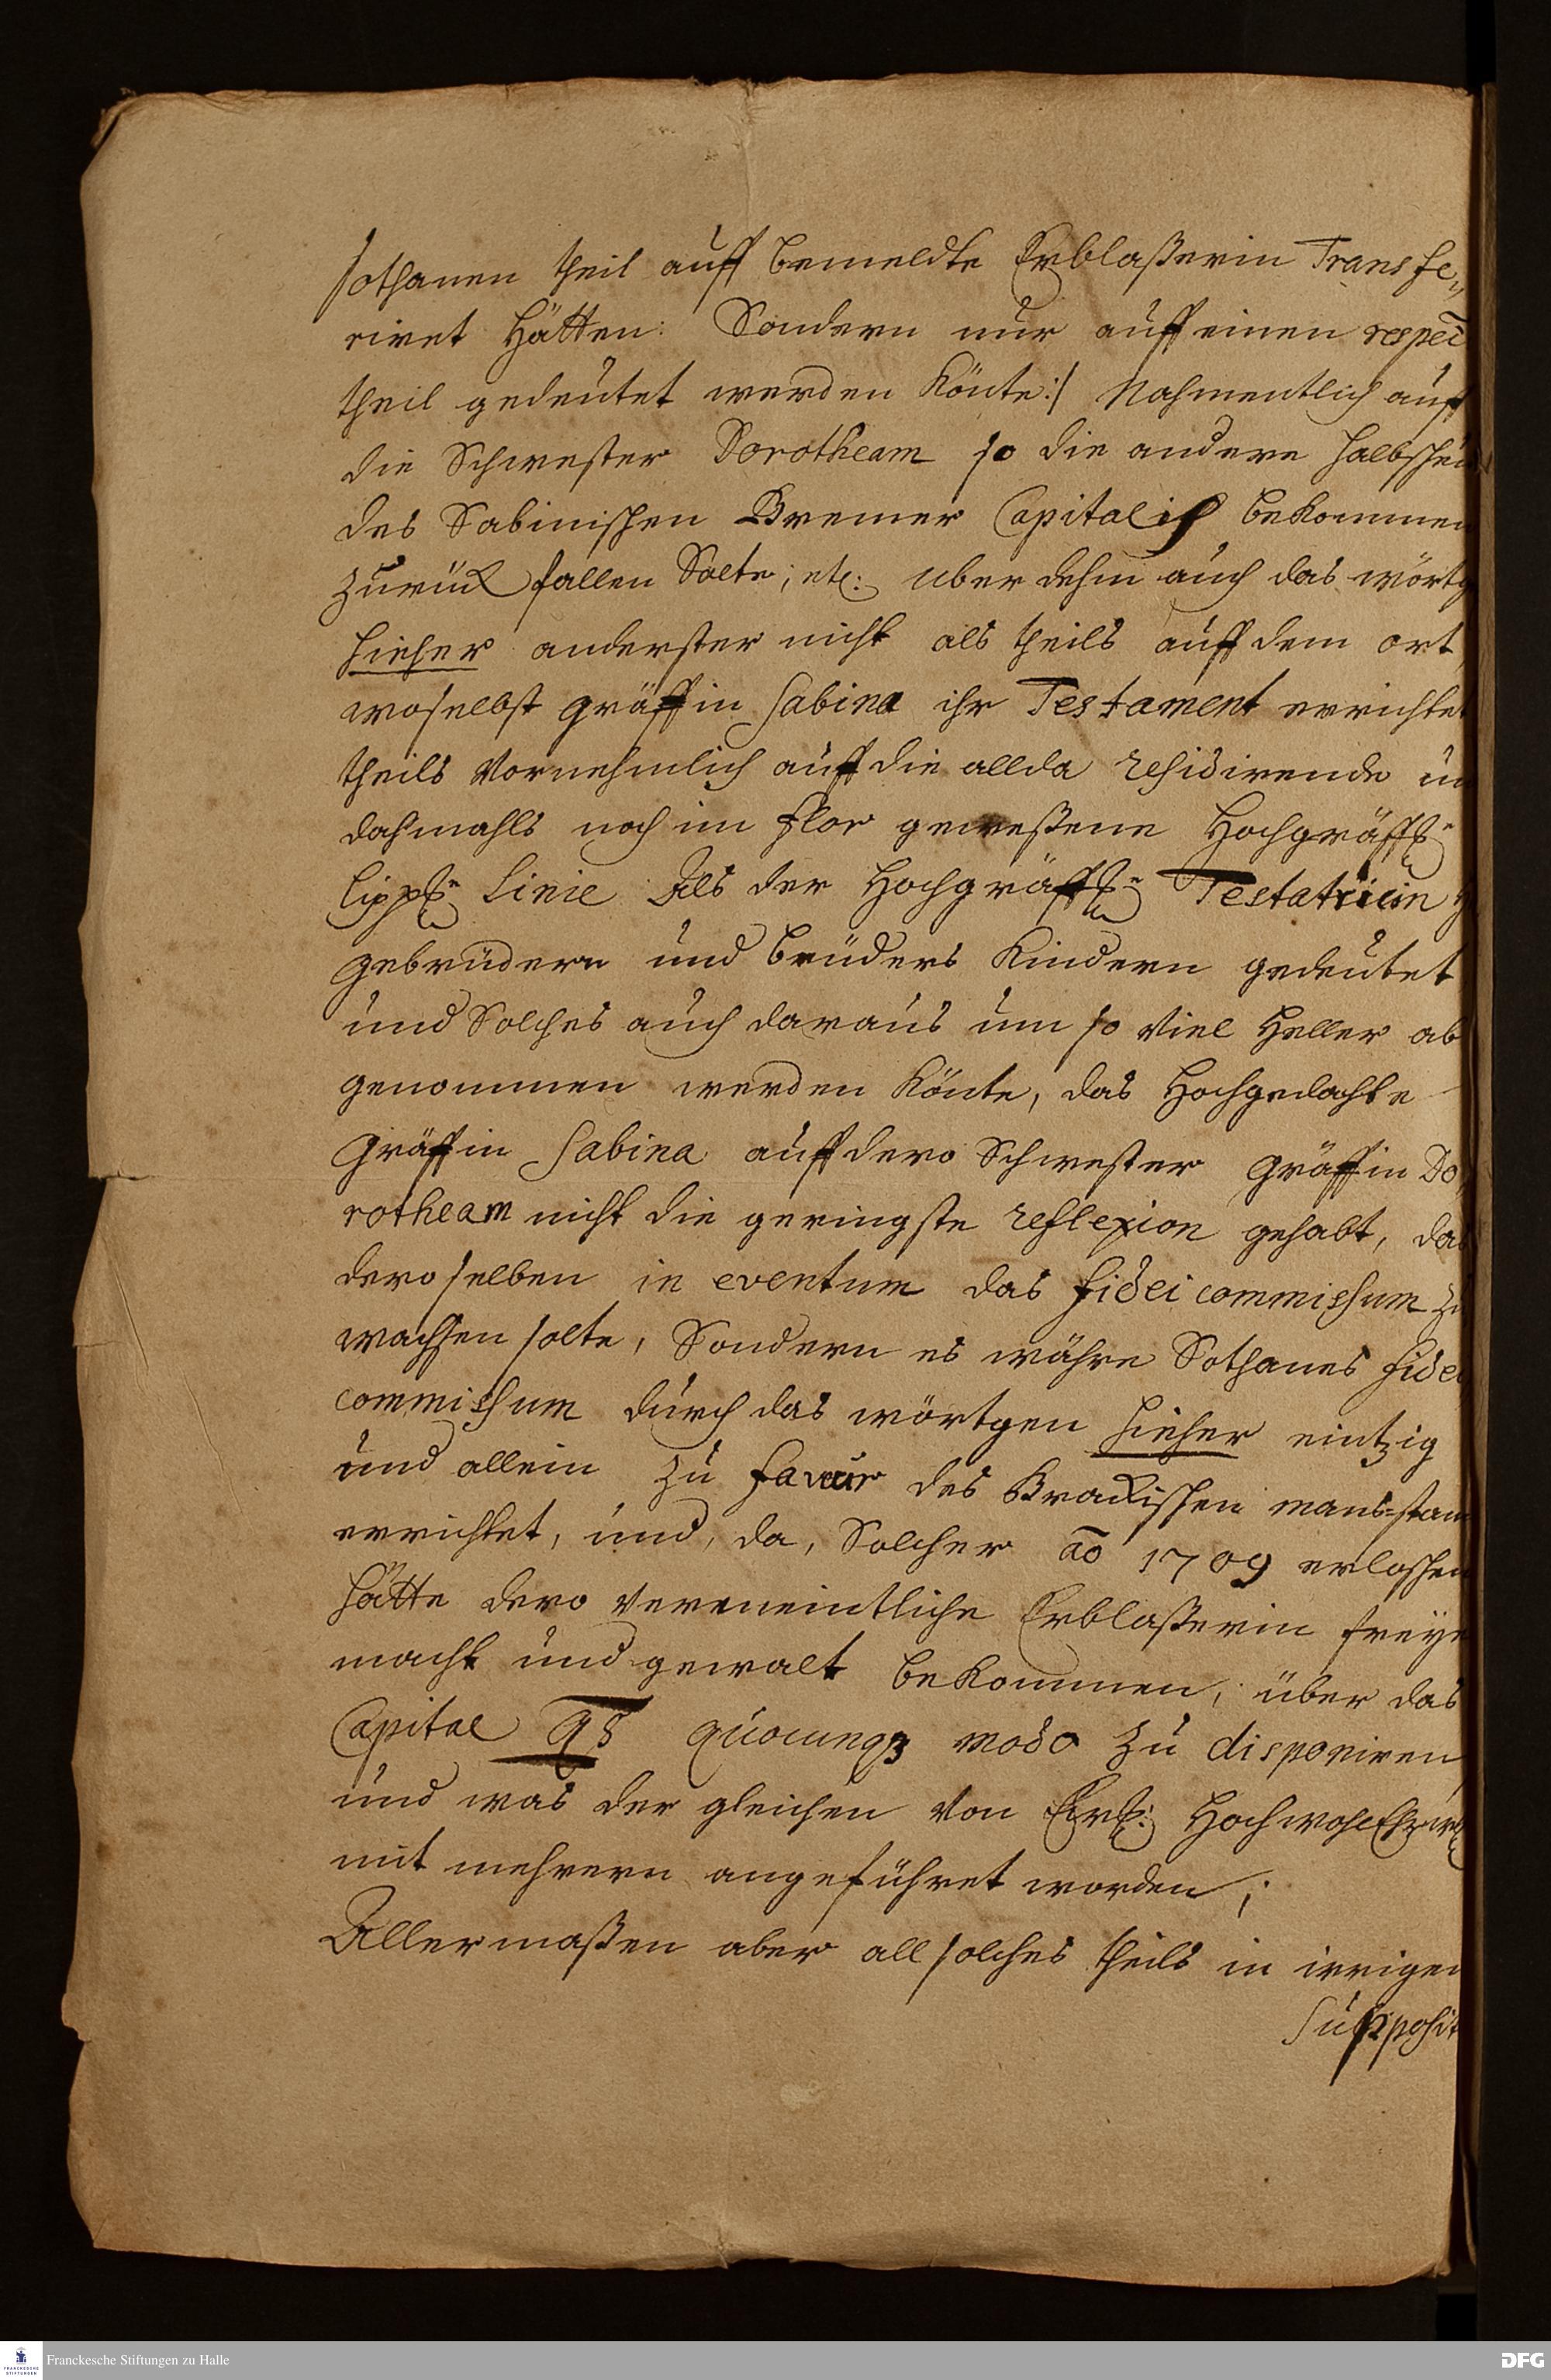 sothanen theil auff bemeldte Erblaßerin Transfe„
riret hätten: Sondern nur auff einen respec͠
theil gedeutet werden könte:/ Nahmentlich auff
die Schwester Dorotheam so die andere halbschei
des Sabinischen Bremer Capitalis bekommen
zurück fallen Solte; etc: uber dehm auch das wörtg
hieher anderster nicht als theils auff dem ort
woselbst gräffin Sabina ihr Testament errichtet
theils Vornehmlich auff die allda residirende un
dahmahls noch im flor geweßene Hochgräffl.
Lippl. Linie Als der Hochgräffl. Testatricin
gebrüdern und brüders Kindern gedeutet
und Solches auch daraus um so viel heller ab
genommen werden könte, das Hochgedachte
Gräffin Sabina auff dero Schwester gräffin Do„
rotheam nicht die geringste reflexion gehabt, das
deroselben in eventum das fidei commissum zu
wachsen solte, Sondern es währe Sothanes fidei
commissum durch das wörtgen hieher eintzig
und allein zu faveur des Brackischen mans-stam
errichtet, und, da, Solcher ao 1709 erloschen
hätte dero vermeintliche Erblaßerin freye
macht und gewalt bekommen, über das
Capital qs quocunq3 modo zu disponiren
und was der gleichen von Ew: Hochwohl
mit mehrern angeführet worden;
Allermaßen aber all solches theils in irrigen
Supposit